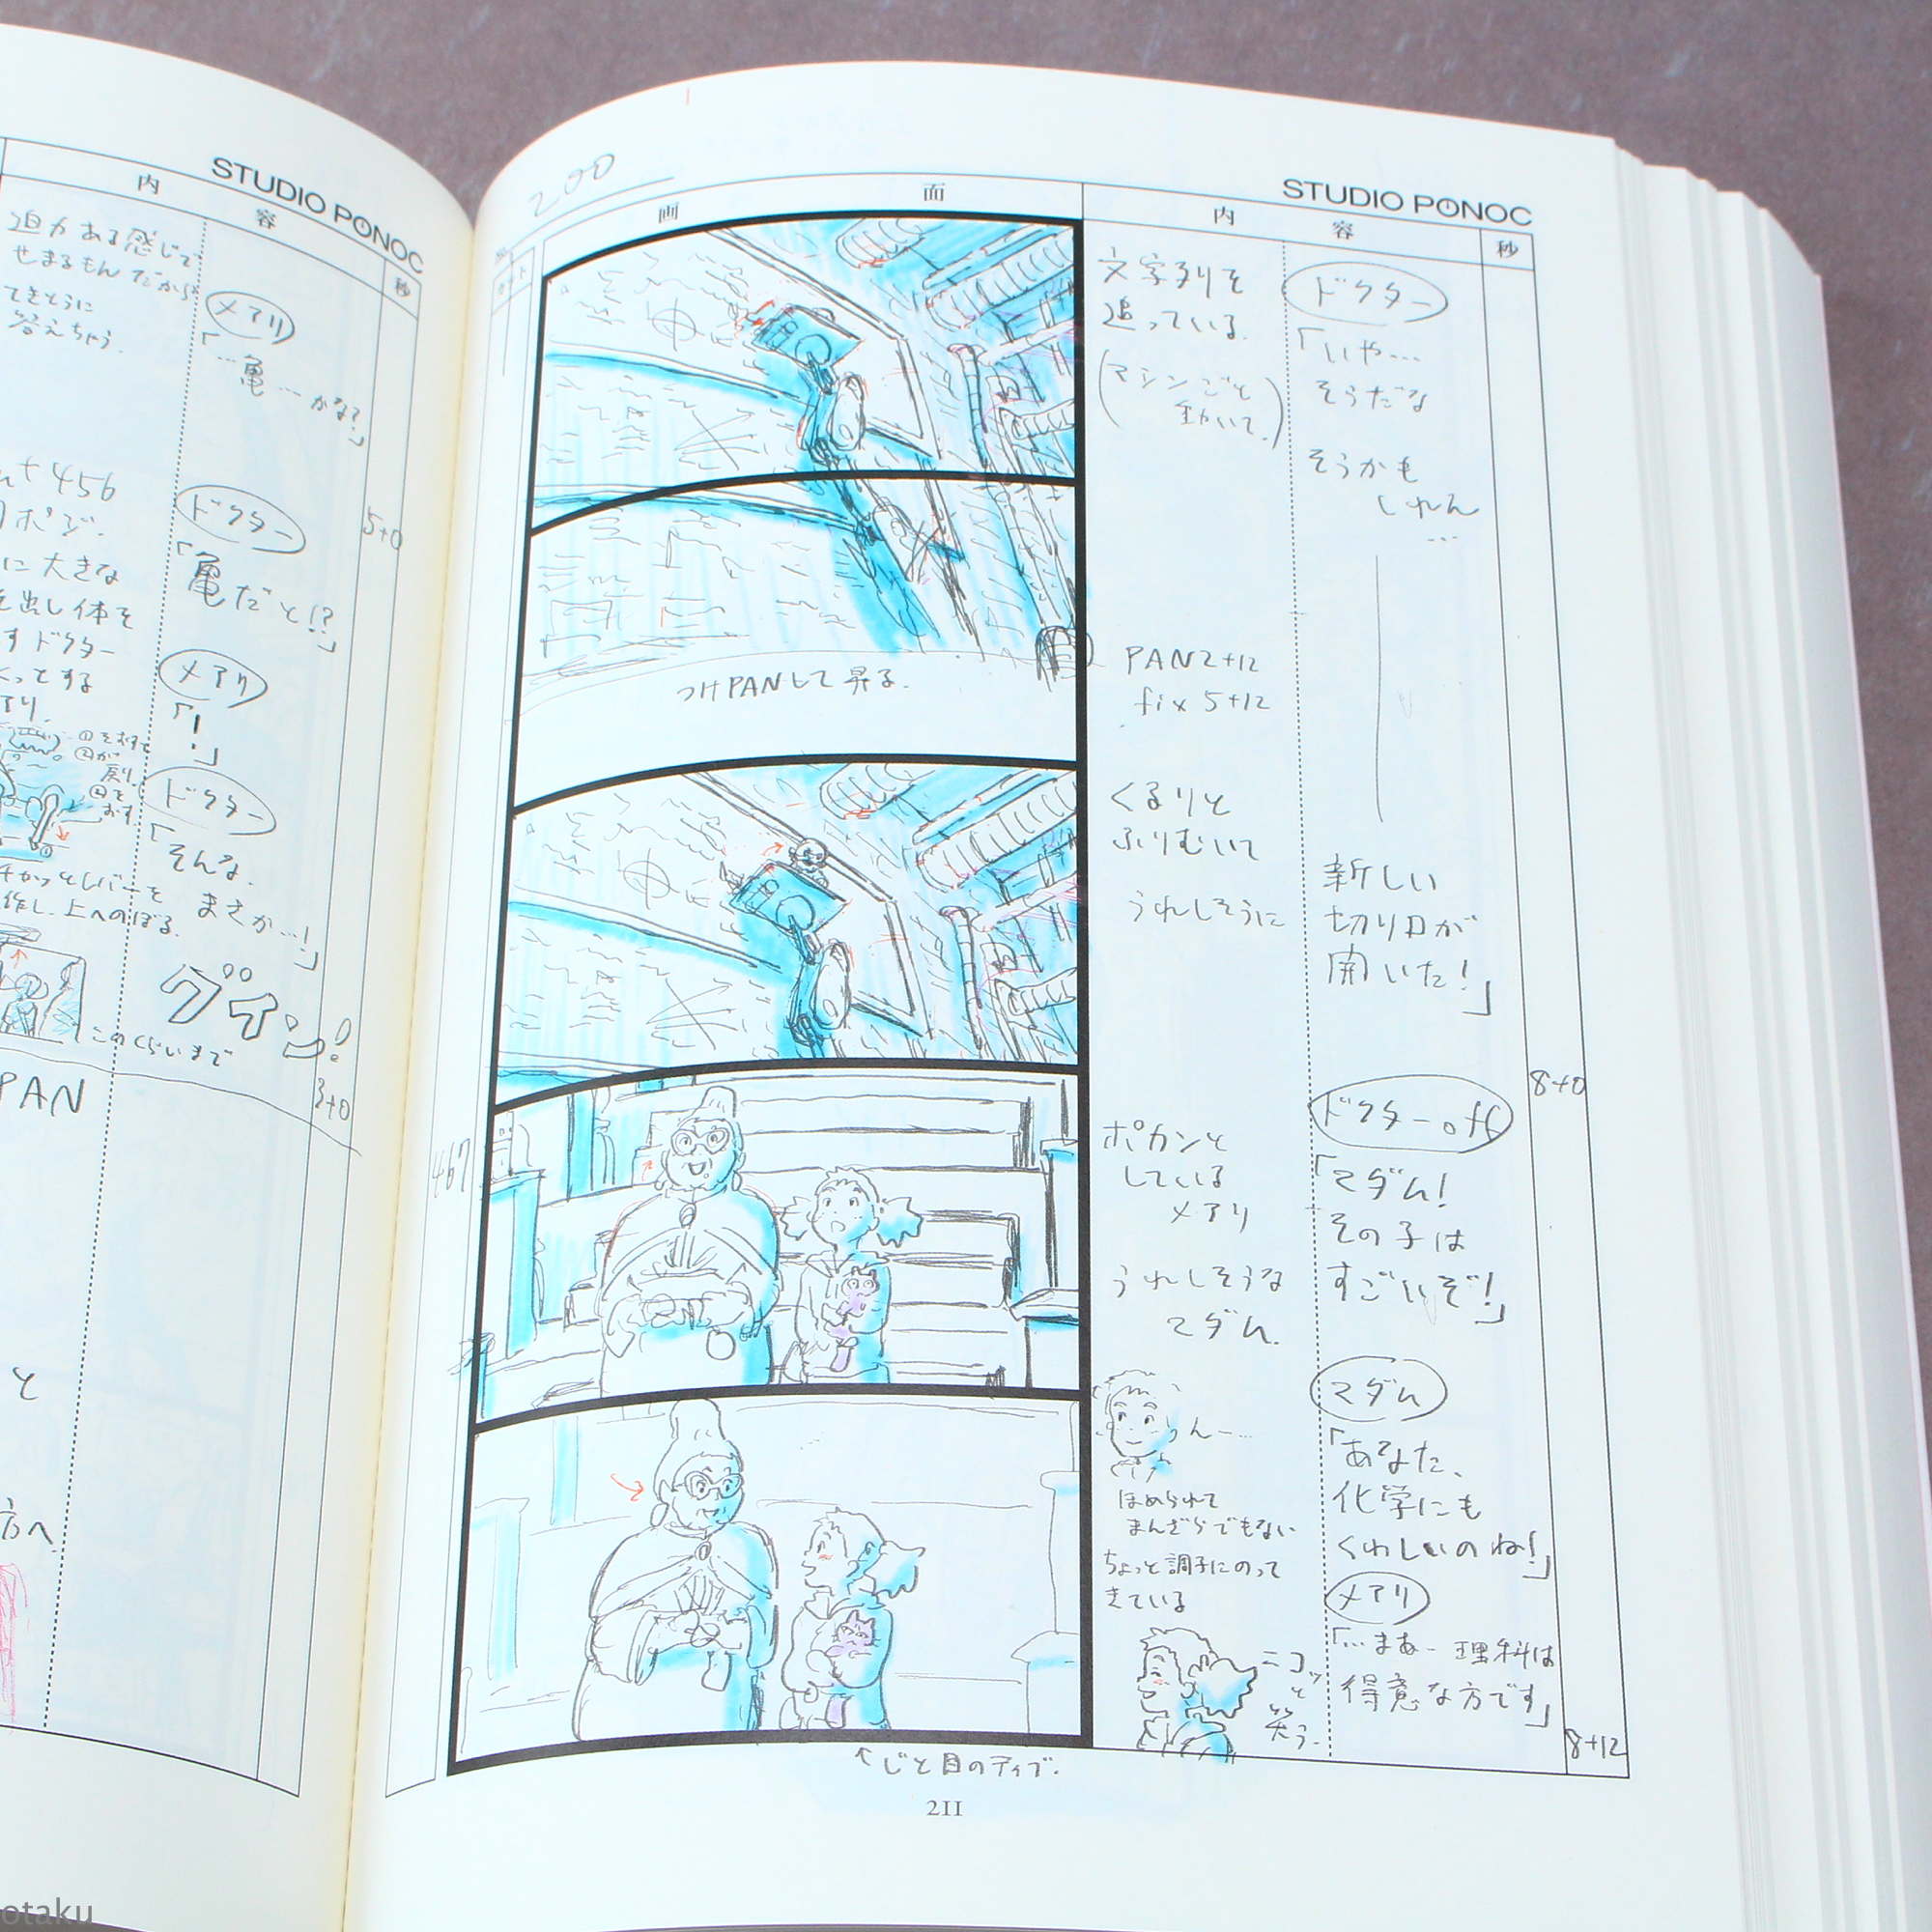 STUDIO PONOC
内容
秒
迫力ある感じで
せまるもんだから
てきとうに
答えちゃう.
メアリ
「…亀…かな?」
456
ポジ.
に大きな
出し体を
すドクター
くっとする
ドクター
「亀だと!?」
5+0
メアリ
「!」
ドクター
「そんな.
まさか…!」
レバーを
作し.上へのぼる.
グイン!
このくらいまで
3+0
PAN
と
方へ
200
STUDIO PONOC
カット
画面
内容
秒
文字列を
追っている.
(マシンごと
動いて.)
ドクター
「いや…
そうだな
そうかも
しれん
…
つけPANして昇る.
PAN2+12
fix 5+12
くるりと
ふりむいて
うれしそうに
新しい
切り口が
開いた!」
8+0
467
ポカンと
している
メアリ
うれしそうな
マダム.
ドクターoff
「マダム!
その子は
すごいぞ!」
うんー…
ほめられて
まんざらでもない
ちょっと調子にのって
きている
マダム
「あなた、
化学にも
くわしいのね!」
メアリ
「…まあー理科は
得意な方です」
ニコッと
笑う.
8+12
↑じと目のティブ.
211
otaku